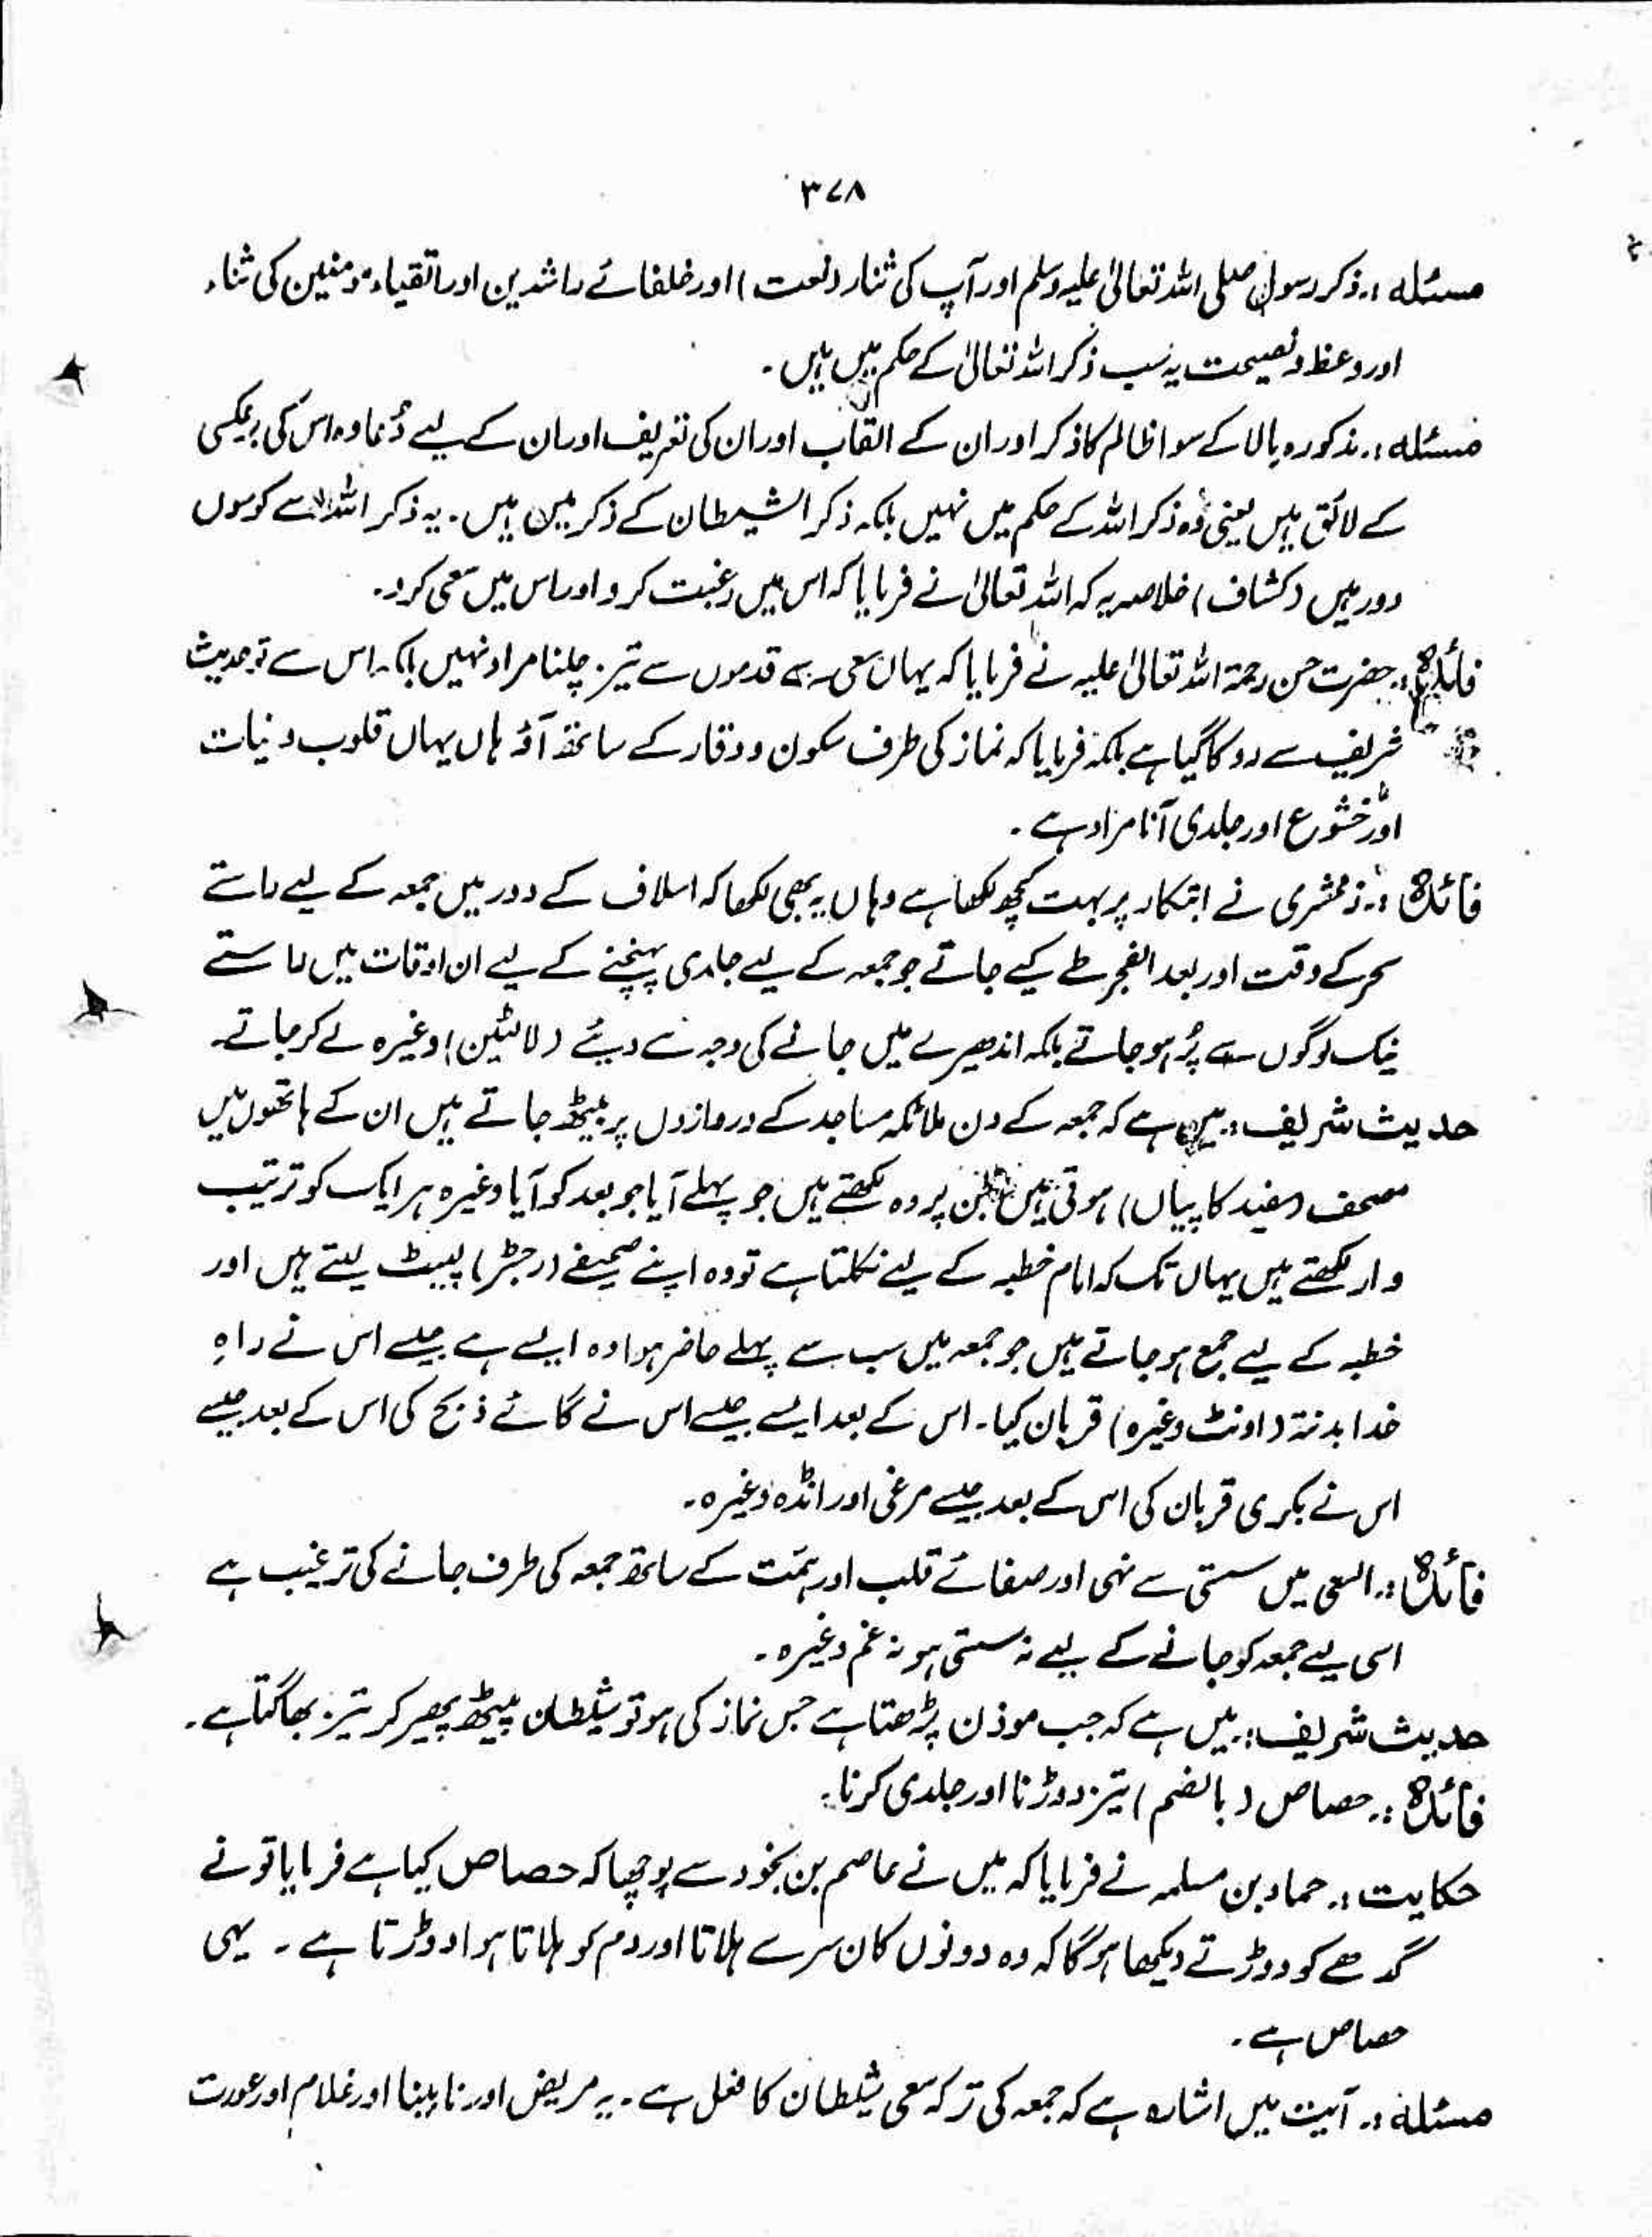 ۳۷۸
مسئلہ :۔ ذکر رسول صلی اللہ تعالیٰ علیہ وسلم اور آپ کی ثناء (نعت) اور خلفائے راشدین اور اتقیاء مومنین کی ثناء
اور وعظ و نصیحت یہ سب ذکر اللہ تعالیٰ کے حکم میں ہیں ۔
مسئلہ :۔ مذکورہ بالا کے سوا ظالم کا ذکر اور ان کے القاب اور ان کی تعریف اور ان کے لیے دُعا وہ اس کی برعکسی
کے لائق ہیں یعنی وُہ ذکر اللہ کے حکم میں نہیں بلکہ ذکر الشیطان کے ذکر میں ہیں ۔ یہ ذکر اللہ سے کوسوں
دور ہیں (کشاف) خلاصہ یہ کہ اللہ تعالیٰ نے فرمایا کہ اس میں رغبت کرو اور اس میں سعی کرو ۔
فائدہ :۔ حضرت حسن رحمۃ اللہ تعالیٰ علیہ نے فرمایا کہ یہاں سعی سے قدموں سے تیز چلنا مراد نہیں بلکہ اس سے تو حدیث
شریف سے روکا گیا ہے بلکہ فرمایا کہ نماز کی طرف سکون و وقار کے ساتھ آؤ ہاں یہاں قلوب و نیات
اور خشوع اور جلدی آنا مراد ہے ۔
فائدہ :۔ زمخشری نے ابتکار پر بہت کچھ لکھا ہے وہاں یہ بھی لکھا کہ اسلاف کے دور میں جمعہ کے لیے راستے
سحر کے وقت اور بعد الفجر طے کیے جاتے جو جمعہ کے لیے جلدی پہنچنے کے لیے ان اوقات میں راستے
نیک لوگوں سے پُر ہو جاتے بلکہ اندھیرے میں جانے کی وجہ سے دیئے (لالٹین) وغیرہ لے کر جاتے ۔
حدیث شریف :۔ میں ہے کہ جمعہ کے دن ملائکہ مساجد کے دروازوں پر بیٹھ جاتے ہیں ان کے ہاتھوں میں
مصحف (سفید کاپیاں) ہوتی ہیں جن پر وہ لکھتے ہیں جو پہلے آیا جو بعد کو آیا وغیرہ ہر ایک کو ترتیب
وار لکھتے ہیں یہاں تک کہ امام خطبہ کے لیے نکلتا ہے تو وہ اپنے صحیفے (رجسٹر) لپیٹ لیتے ہیں اور
خطبہ کے لیے جمع ہو جاتے ہیں جو جمعہ میں سب سے پہلے حاضر ہوا وہ ایسے ہے جیسے اس نے راہِ
خدا بدنۃ (اونٹ وغیرہ) قربان کیا ۔ اس کے بعد ایسے جیسے اس نے گائے ذبح کی اس کے بعد جیسے
اس نے بکری قربان کی اس کے بعد جیسے مرغی اور انڈہ وغیرہ ۔
فائدہ :۔ السعی میں سستی سے نہی اور صفائے قلب اور ہمّت کے ساتھ جمعہ کی طرف جانے کی ترغیب ہے
اسی لیے جمعہ کو جانے کے لیے نہ سستی ہو نہ غم وغیرہ ۔
حدیث شریف :۔ میں ہے کہ جب موذن پڑھتا ہے جس نماز کی ہو تو شیطان پیٹھ پھیر کر تیز بھاگتا ہے ۔
فائدہ :۔ حصاص (بالضم) تیز دوڑنا اور جلدی کرنا ۔
حکایت :۔ حماد بن مسلمہ نے فرمایا کہ میں نے عاصم بن نجود سے پوچھا کہ حصاص کیا ہے فرمایا تو نے
گدھے کو دوڑتے دیکھا ہوگا کہ وہ دونوں کان سرے ہلاتا اور دم کو ہلاتا ہوا دوڑتا ہے ۔ یہی
حصاص ہے ۔
مسئلہ :۔ آیت میں اشارہ ہے کہ جمعہ کی ترکہ سعی شیطان کا فعل ہے ۔ یہ مریض اور نابینا اور غلام اور عورت